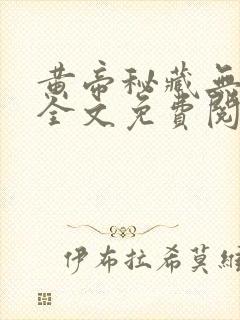 黄帝秘藏無
全文免費閱
伊布拉希莫維